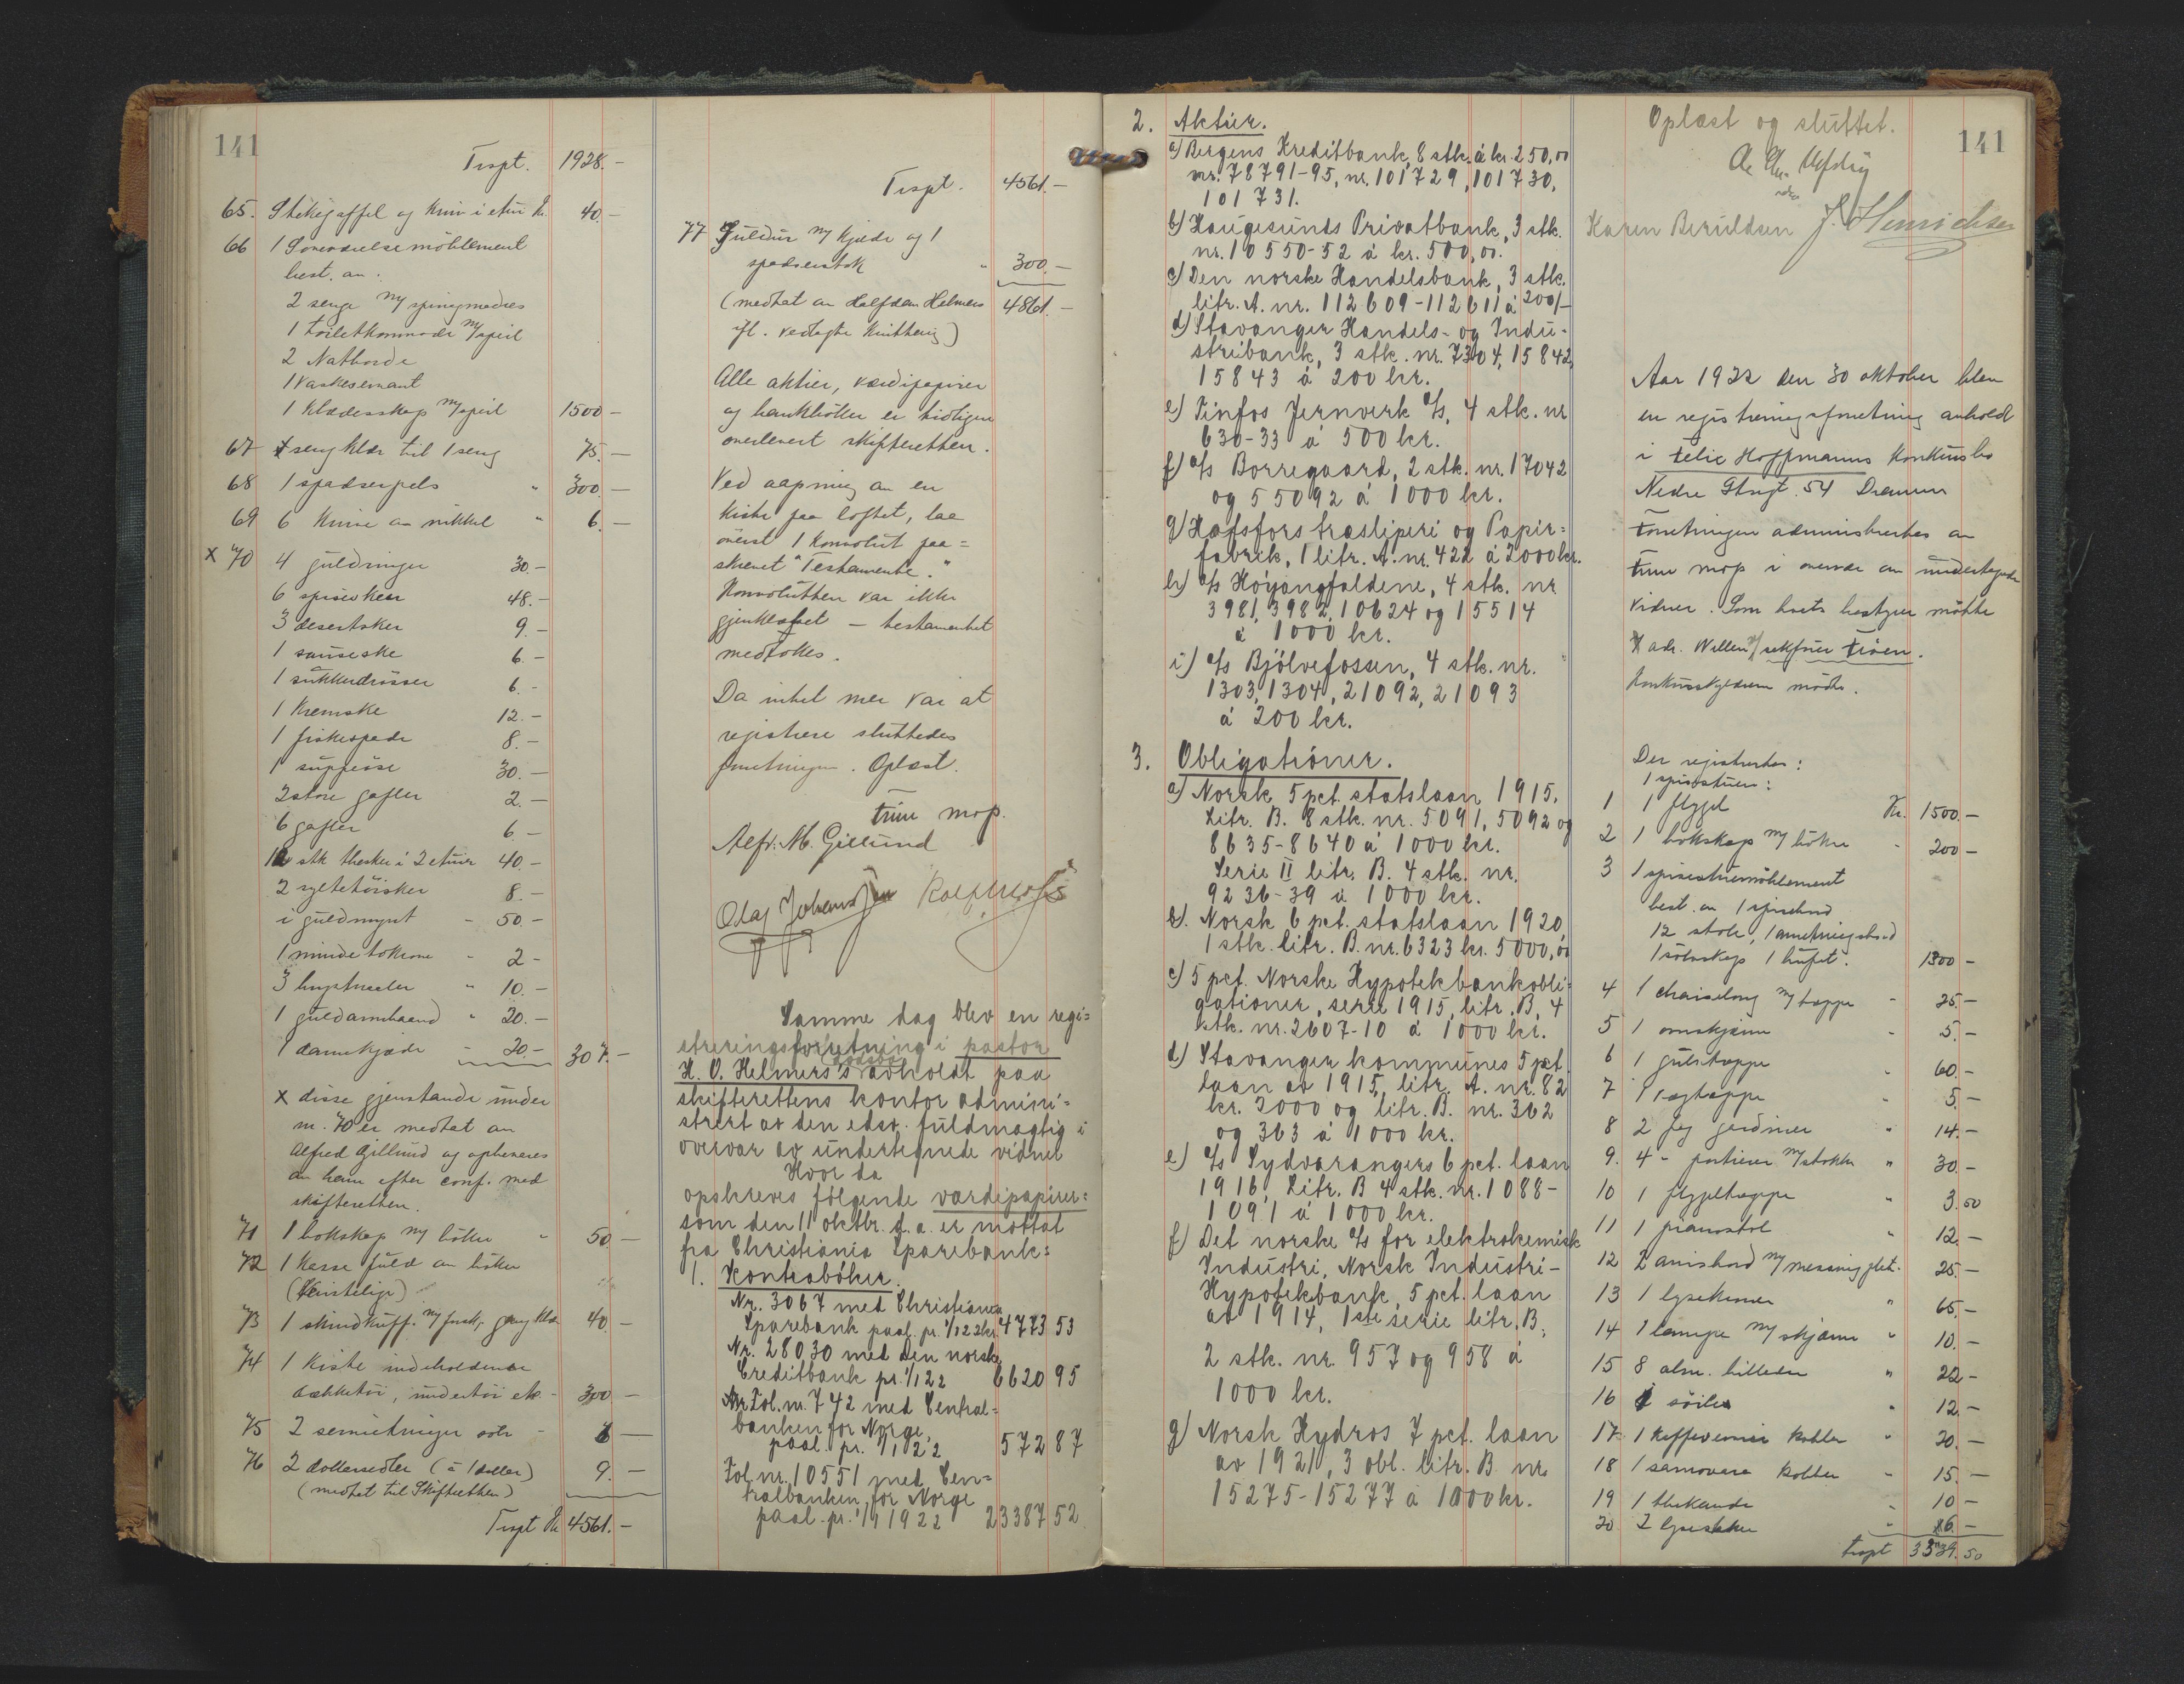 141
Trspt. 1928.-
65. Stekegaffel og Kniv i etui Kr. 40.-
66 1 Soveværelsemöblement
best. av:
2 senge m/ springmadras
1 toiletkommode m/speil
2 Natborde
1 Vaskeservant
1 Klædesskap m/speil 1500-
67 sengklær til 1 seng 75.-
68 1 spadserpels " 300.-
69 6 Knive av nikkel " 6.-
x 70 4 guldringer 30.-
6 spiseskeer 48.-
3 desertskeer 9.-
1 sauseske 6.-
1 sukkerdrösser 6.-
1 Kremske 12.-
1 fiskespade 8.-
1 suppeöse 30.-
2 store gafler 2.-
6 gafler 6.-
12 stk theskeer i 2 etuier 40.-
2 syltetöisker 8.-
i guldmynt - 50.-
1 minde tokrone - 2-
3 brystnaaler " 10.-
1 guldarmbaand " 20.-
1 damekjæde - 20.- 307.-
x disse gjenstande under
nr. 70 er medtat av
Alfred Gillund og opbevares
av ham efter conf. med
skifteretten.
71 1 bokskap m/ böker " 50.-
72 1 Kasse fuld av böker
(Kristelige)
73 1 skindkuff. m/ gangklær 40.-
74 1 Kiste indeholdende
dækketöi, undertöi etc - 300-
75 2 servietringer sölv - 6-
76 2 dollarsedler (à 1 dollar) 9.-
(medtat til Skifteretten)
Trspt Kr 4561.-
Trspt. 4561.-
77 Guldur m/ Kjæde og 1
spadserstok " 300.-
(medtat av Halfdan Helmers 4861.-
ifl. vedlagte Kvittering)
Alle aktier, værdipapirer
og bankböker er tidligere
overlevert skifteretten.
Ved aapning av en
Kiste paa loftet, laa
överst 1 Konvolut paa=
skrevet "Testamente."
Konvolutten var ikke
gjenklæbet - testamentet
medtokes.
Da intet mer var at
registrere sluttedes
forretningen. Oplæst.
Alfr. M. Gillund
Olaf Johansen
Samme dag blev en regi=
streringsforretning i pastor
dödsbo
H. O. Helmers's avholdt paa
skifterettens kontor admini=
strert av den edsv. fuldmægtig i
overvær av undertegnede vidner
Hvor da
opskreves følgende værdipapirer=
som den 11 oktbr. d.a. er mottat
fra Christiania Sparebank:
1. Kontraböker.
Nr. 3067 med Christiania
Sparebank paal. pr. 1/1 22 kr. 4773 53
Nr. 28030 med Den norske
Creditbank pr. 1/1 22 6620 95
Fol. nr. 742 med Central=
banken for Norge,
paal. pr. 1/1 22 572 87
Fol. nr. 10551 med Cen=
tralbanken for Norge
paal. pr. 1/1 1922 23387 52
2. Aktier.
a) Bergens Kreditbank, 8 stk. à kr. 250,00
nr. 78791-95, nr. 101729, 101730,
101731.
b) Haugesunds Privatbank, 3 stk.
nr. 10550-52 à kr. 500,00.
c) Den norske Handelsbank, 3 stk.
litr. A. nr. 112609-112611 à 200/-
d) Stavanger Handels- og Indu-
stribank, 3 stk. nr. 7304, 15842,
15843 à 200 kr.
e) Tinfos Jernverk a/s, 4 stk. nr
630-33 à 500 kr.
f) a/s Borregaard, 2 stk. nr. 17042
og 55092 à 1000 kr.
g) Hafsfors træsliperi og Papir=
fabrik, 1 litr. A. nr. 422 à 2000 kr.
h) a/s Höyangfaldene, 4 stk. nr
3981, 3982, 10624 og 15514
à 1000 kr.
i) a/s Bjölvefossen, 4 stk. nr.
1303, 1304, 21092, 21093
à 200 kr.
3. Obligationer.
a) Norsk 5 pct. statslaan 1915.
Litr. B. 8 stk. nr. 5091, 5092 og
8635-8640 à 1000 kr.
Serie II litr. B. 4 stk. nr.
9236-39 à 1000 kr.
b). Norsk 6 pct. statslaan 1920,
1 stk. litr. B. nr. 6323 kr. 5000,00
c) 5 pct. Norske Hypotekbankobli=
gationer, serie 1915, litr. B, 4
stk. nr. 2607-10 à 1000 kr.
d) Stavanger kommunes 5 pct.
laan av 1915, litr. A. nr. 82
kr. 2000 og litr. B. nr. 362
og 363 à 1000 kr.
e) a/s Sydvarangers 6 pct. laan
1916, Litr. B 4 stk. nr. 1088-
1091 à 1000 kr.
f) Det norske a/s for elektrokemisk
Industri, Norsk Industri-
Hypotekbank, 5 pct. laan
av 1914, 1ste serie litr. B,
2 stk. nr. 957 og 958 à
1000 kr.
g) Norsk Hydros 7 pct. laan
av 1921, 3 obl. litr. B. nr.
15275-15277 à 1000 kr.
141
Oplæst og sluttet.
Karen Beruldsen J. Henrichsen
Aar 1922 den 30 oktober blev
en registreringsforretning avhold
i Felix Hoffmanns Konkursbo
Nedre Strgt. 54 Drammen
Forretningen administrertes av
i overvær av undertegnede
vidner. Som boets bestyrer mötte
adv. Willen v/ sakförer Tröen.
Konkursskyldneren mötte.
Der registrertes:
I spisestuen:
1 1 flygel Kr. 1500.-
2 1 bokskap m/ böker - 200-
3 1 spisestuemöblement
best. av 1 spisebord
12 stole, 1 anretningsbord
1 sölvskap 1 buffet. 1300-
4 1 chaiselong m/ tæppe - 25-
5 1 ovnskjærm - 5.-
6 1 gulvtæppe - 60.-
7 1 vægtæppe " 5.-
8 2 fag gardiner " 14.-
9. 4 - portierer m/stokke " 30.-
10 1 flygeltæppe " 3.50
11 1 pianostol " 12.-
12 2 avisbord m/ messingplat. - 25.-
13 1 lysekrone " 65.-
14 1 lampe m/ skjærm " 10.-
15 8 alm. billeder " 22-
16 söiler " 12.-
17 1 Kaffeservise kobber " 20.-
18 1 samovare kobber - 15.-
19 1 thekande - 10-
20 2 lysestaker - 6.-
trspt